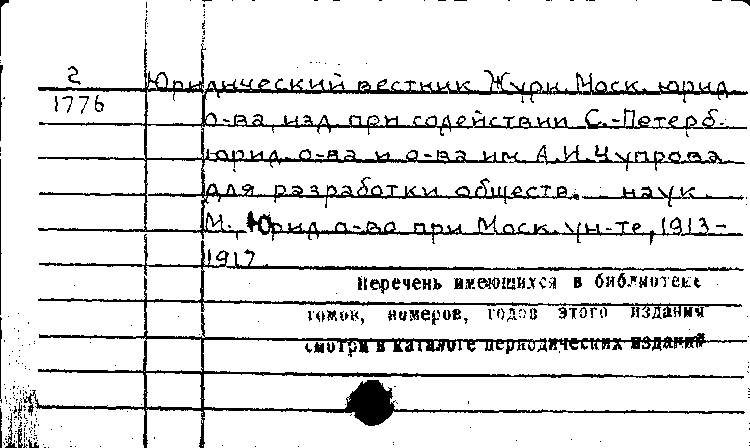 2 Юридический вестник Журн. Моск. юрид.
1776
о-ва, изд. при содействии С.-Петерб.
юрид. о-ва и о-ва им. А.И. Чупрова
для разработки обществ. наук.
М., Юрид. о-во при Моск. ун-те, 1913-
1917
Перечень имеющихся в библиотеке
томов, номеров, годов этого издания
смотри в каталоге периодических изданий